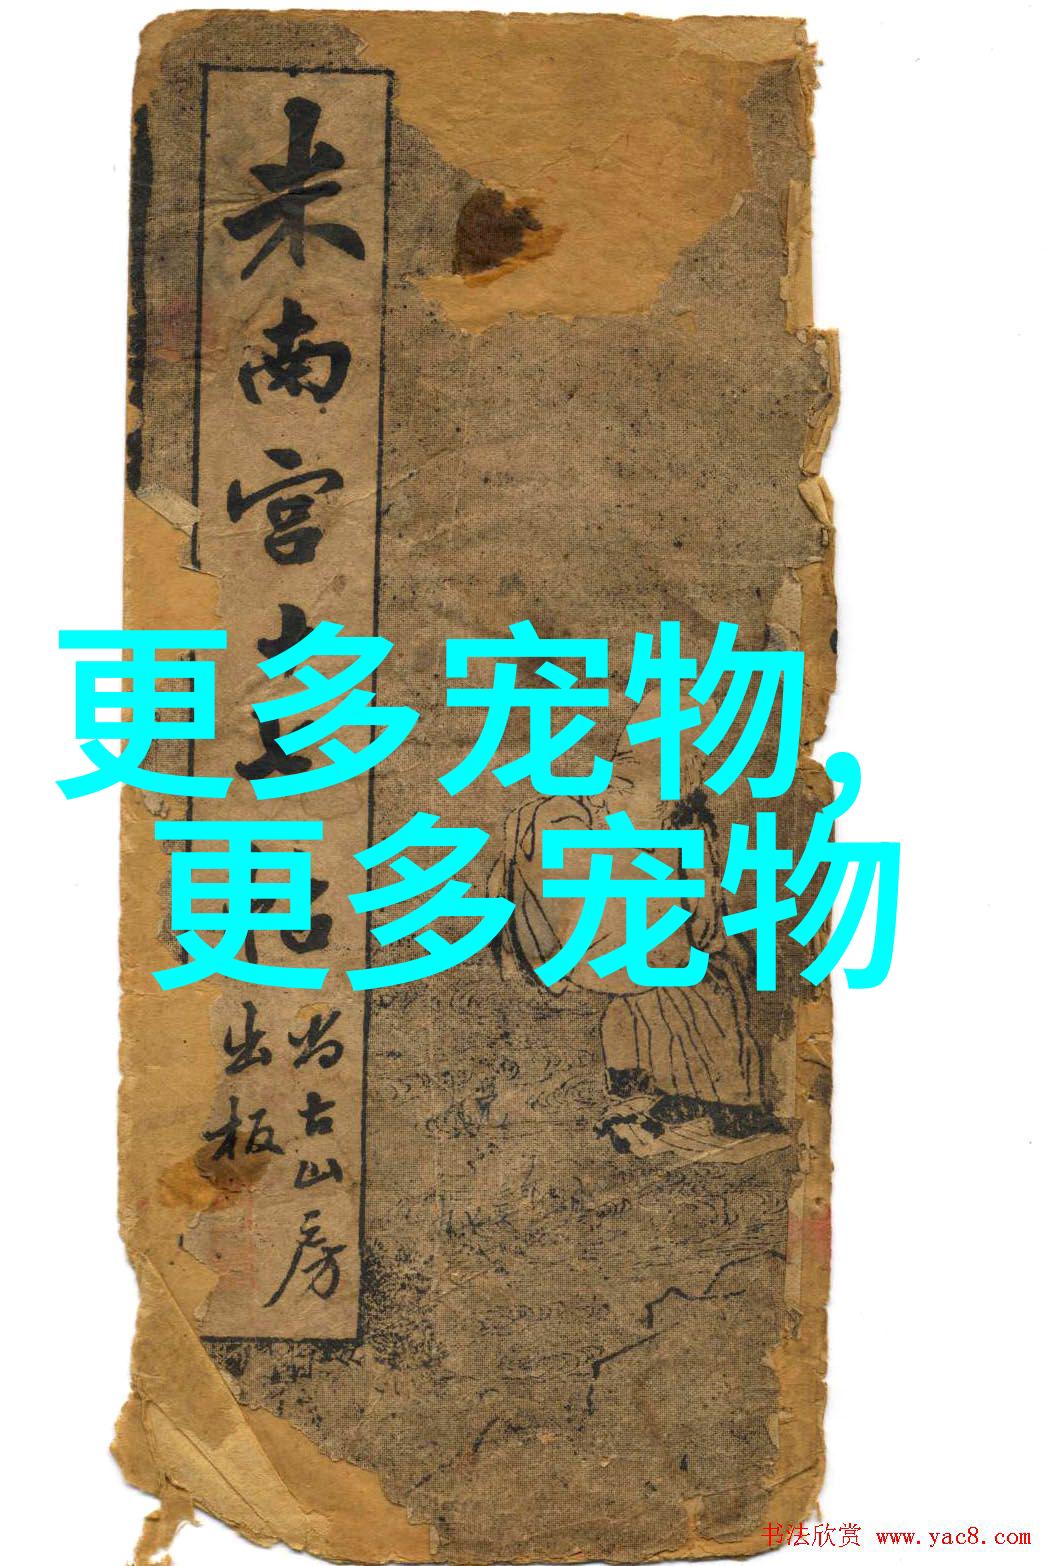 米南宫
尚古山房
出板
更多宠物,
更多宠物
书法欣赏 www.yac8.com